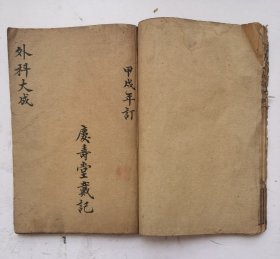 甲戌年訂
慶壽堂戴記
外科大成